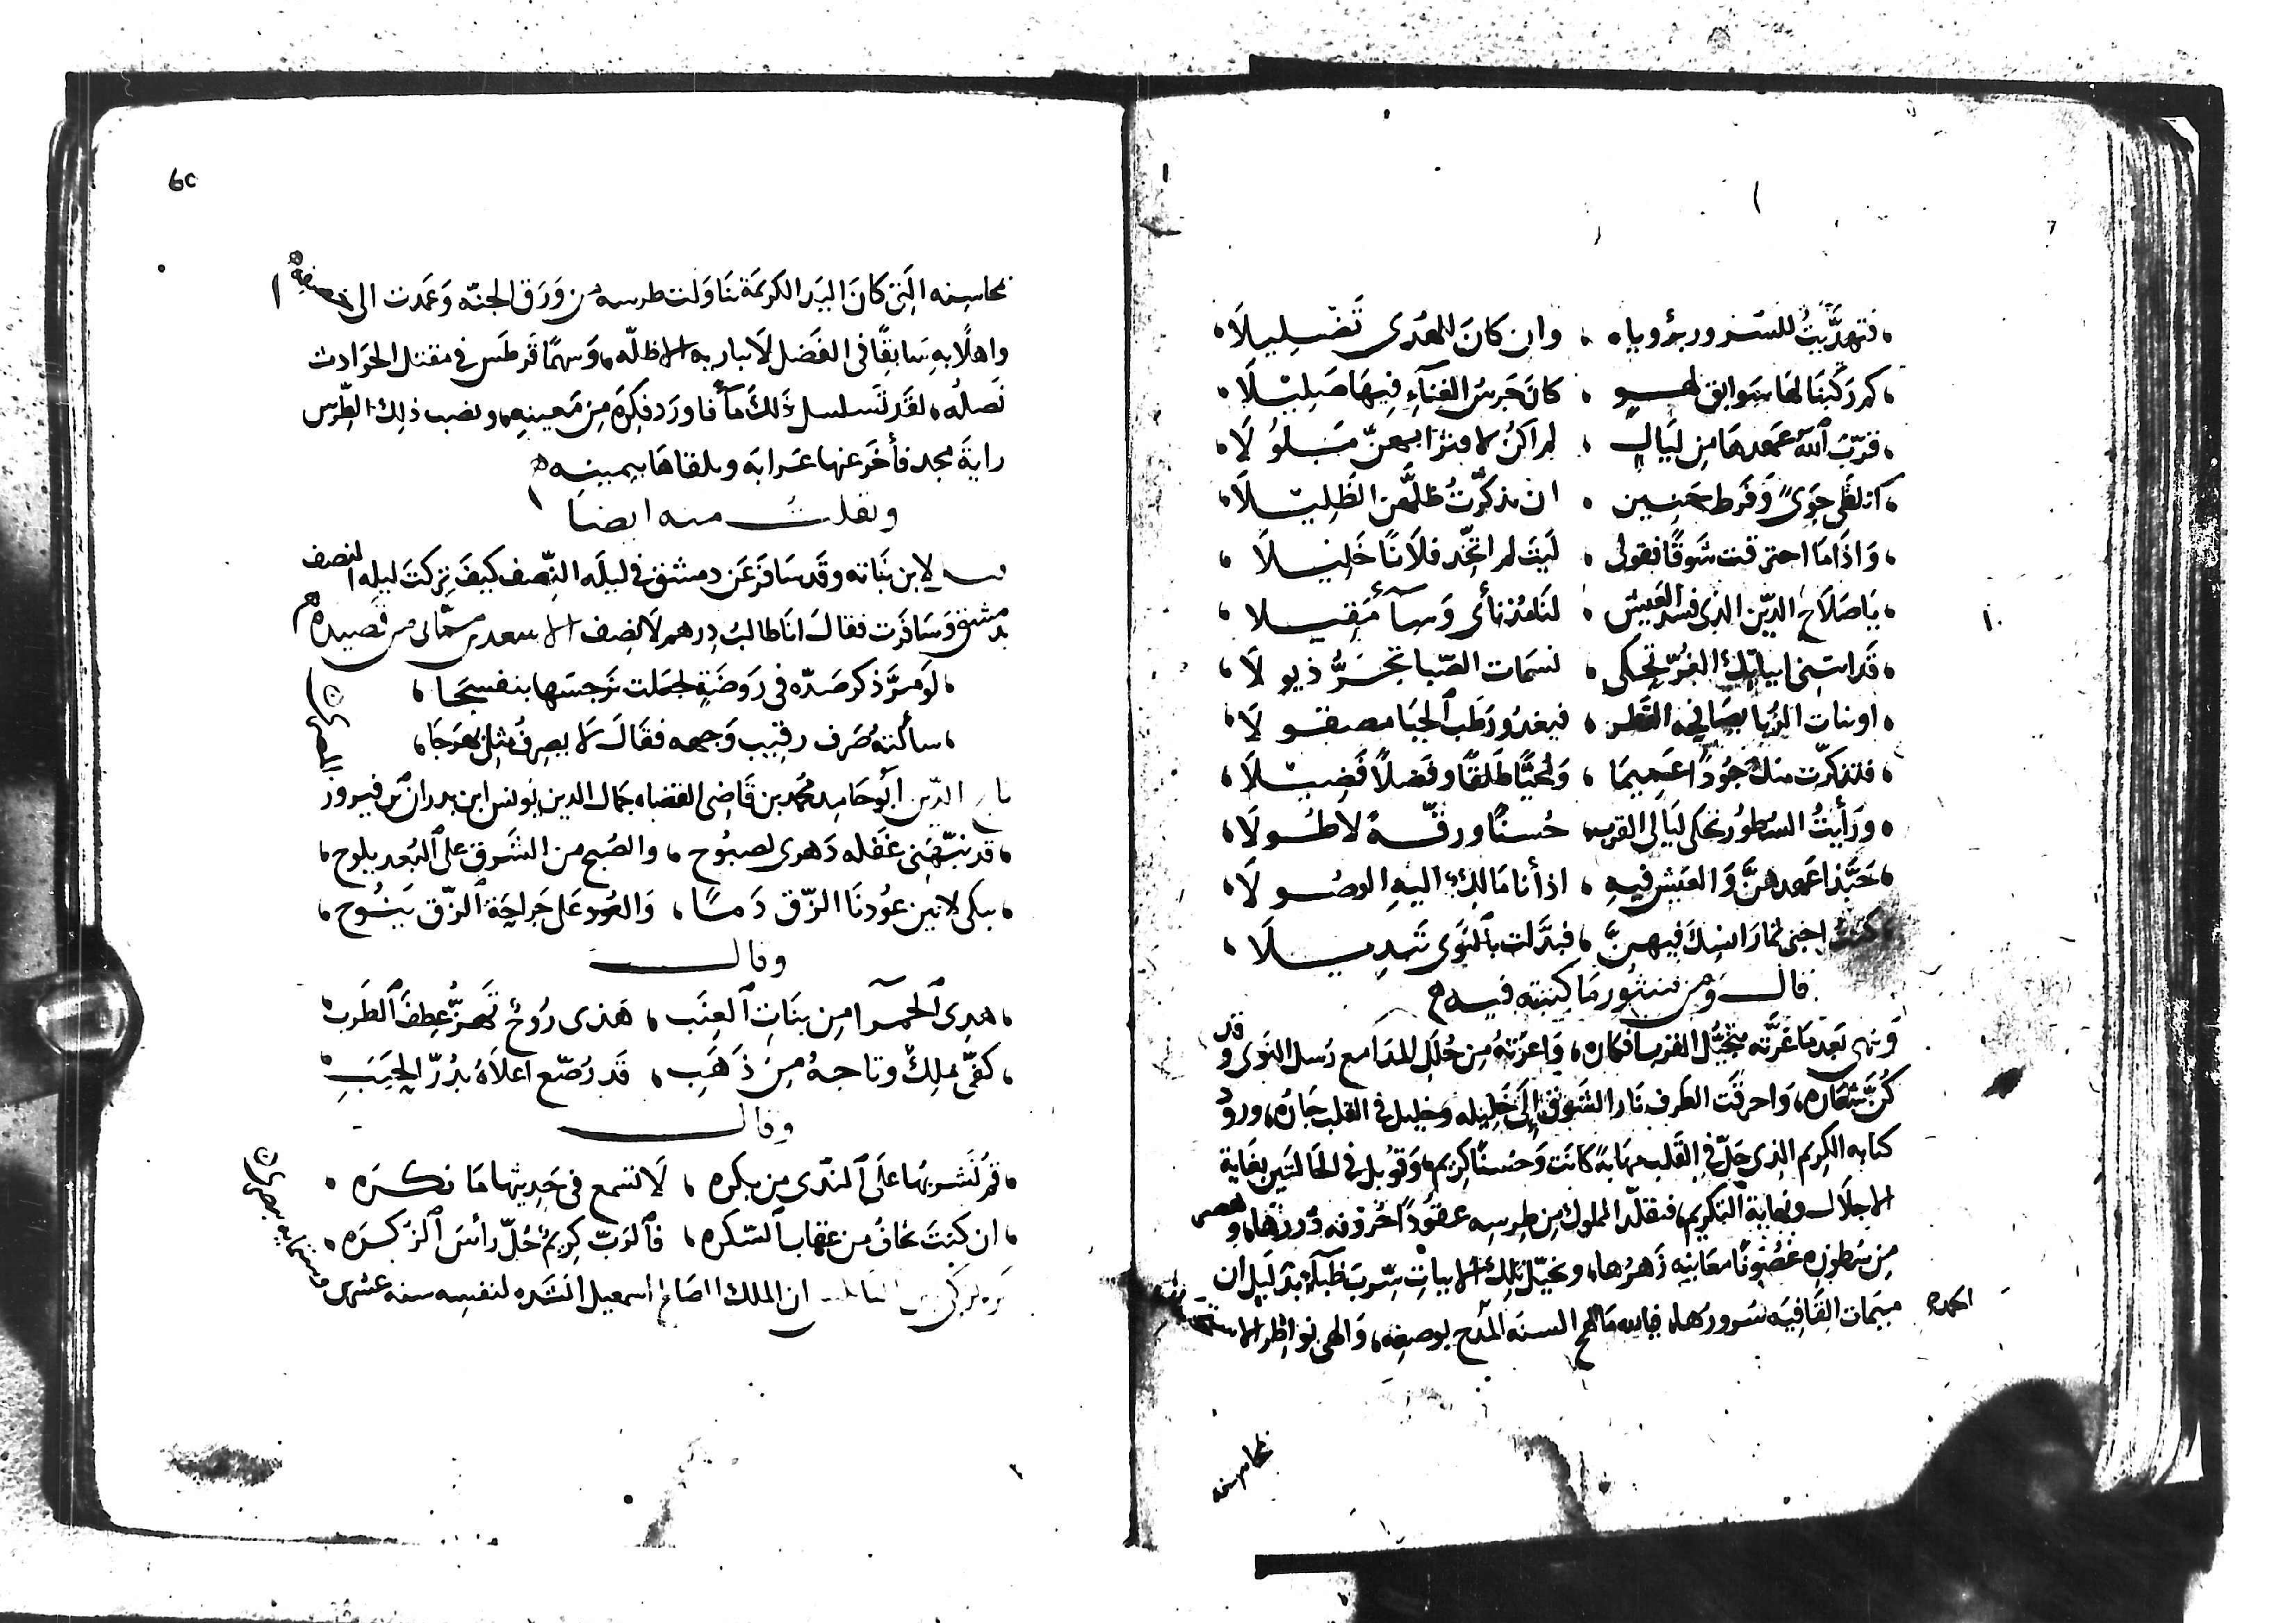 فتهدَّيتُ للسّرور برُوياه ، وان كانَ للهُدى تَضْلِيلَا
كم ركبنَا لهَا سَوابق لهوٍ ، كانَ جَرسُ الغناءِ فيهَا صَلِيْلَا
قرّبَ اللهُ عهدهَا مِن ليَالٍ ، لم اكنُ لا منزا بهنّ مَلُولَا
اتلظّى جوًى وفَرط حَنِين ، ان تذكّرتُ ظلَّهنّ الظَلِيْلَا
وَاذَا مَا احترقت شَوقًا فقولى ، ليتَ لم اتخِّد فلَانًا خَلِيْلَا
يَا صَلاَح الدّين الذى فسد العَيش ، لنَا مُذ نأى وَسآءَ مَقِيلا
قَد اتتنى ابياتك الغُرّ تحكى ، نسمَات الصّبا تجُرُّ ذيولَا
اوبنات الرُبا يصَافحه القَطر ، فيغدُو رَطب الجبَا مصقولَا
فتذكّرت منكَ جُودًا عَميمَا ، وَمُحيًّا طَلقًا وفَضلًا فَضِيْلَا
ورَأيتُ السُطور تحكى ليَالى القرب ، حُسنًا ورقّةً لا طُولَا
حَبَّذا عَهدهنَّ وَالعيش فيهِ ، اذ أنا مَالِك اليهِ الوصُولَا
كنتُ اجنى ثمارَ انسِكَ فيهنَّ ، فبدَّلت بالنَوى تَبدِيلَا
قال وَمِن منثُور مَا كتبته فيه
وَينهى بَعد مَا غرَّته بتخيُّل القرب افكاره ، وَاعرَتهُ مِن حُلَل المدَامع رُسل النوى وقد
كُنَّ شعَاره ، وَاحرقَت الطَرف نَار الشَوق إلَى خَلِيله وخليل فى القلب جَاره ، ورود
كتابه الكريم الذى حَلّ فى القَلب مهَابةً كانَت وَحُسنًا كريم ، وَقوُبل فى الحَالتَين بغَاية
الاجلَال ونهاية التكريم ، فتقلّد المملوك مِن طِرسِه عقوُدًا حُروفه دُررُهَا ، وهصر
مِن سُطُوره غصُونًا معَانيه زَهرُها ، وتخيّل تلك الابياتِ سِربَ ظبَآء بدَليل ان
ميمَات القَافيَه سُرورهَا ، فيالله مَا السنه المَدح بوصفِه ، وَالهى نواظر
محاسِنه التِى كانَ اليَد الكَريمَة تنَاوَلت طرسه من وَرَق الجنّه وَعَمَدت الى
واهلًا بهِ سَابقًا فى الفَضل لَا يباريه الاظلّه ، وَسهمًا قرطَس فى مقتل الحَوادث
نَصلُه ، لقَد تَسلسل ذَلكَ مآءً فاورَد فكره مِن مَعينهِ ، ونصب ذلِكَ الطِّرس
رايةَ مجد فأخَر عنها عَرابَه وتلقاهَا بيمينِه
ونقلتُ منه ايضًا
لابن نُبَاته وقَد سَافَر عَن دمشق فى ليلَه النِّصف كيفَ تركتَ ليلَه النصف
بدمشق وَسَافرَت فقالَ انَا طالبُ دِرهم لَا نصف الاسعدى من قصيده
لَو مرَّ ذكر صَدّه فى رَوضَةٍ لجعَلت نَرجسَها بنفسجَا ،
سألتهُ صَرف رقيبِ وَجههِ فقالَ لَا يصرِفُ مِثلى بهرَجَا ،
تاج الدّين أبُو حَامِد محُمد بن قَاضِى القضاه جمَال الدين يونس ابن بدران بن فيروز المصرى
قد نبّهَنِى غَفله دَهرى لصبُوح ، والصُبح من الشَرق على البُعد يلوح ،
يبكى لانين عُودنَا الزّق دَمًا ، وَالعُود عَلى جَراحَة الزّق يَنُوح ،
وقال
هذِى الحَمرآ مِن بنَاتِ العِنَب ، هَذى رُوحٌ تَهزُّ عِطفَ الطَرب
كفّى مَلِكٌ وتاجهُ مِن ذَهَب ، قَد رُصّع اعلَاهُ بدُرّ الحبَب
وقال
قم نشربُها عَلَى النَدى مِن بكره ، لَا تسمع فى حَدِيثها مَا تكرَه ،
ان كنتَ تخافُ من عقاب السّكره ، فالرَبّ كريمٌ حُلّ رأسَ الزكرَه ،
ان الملك الصَالح اسمعيل انشَده لنفسِه سنه عشرى وستمايه بمصر